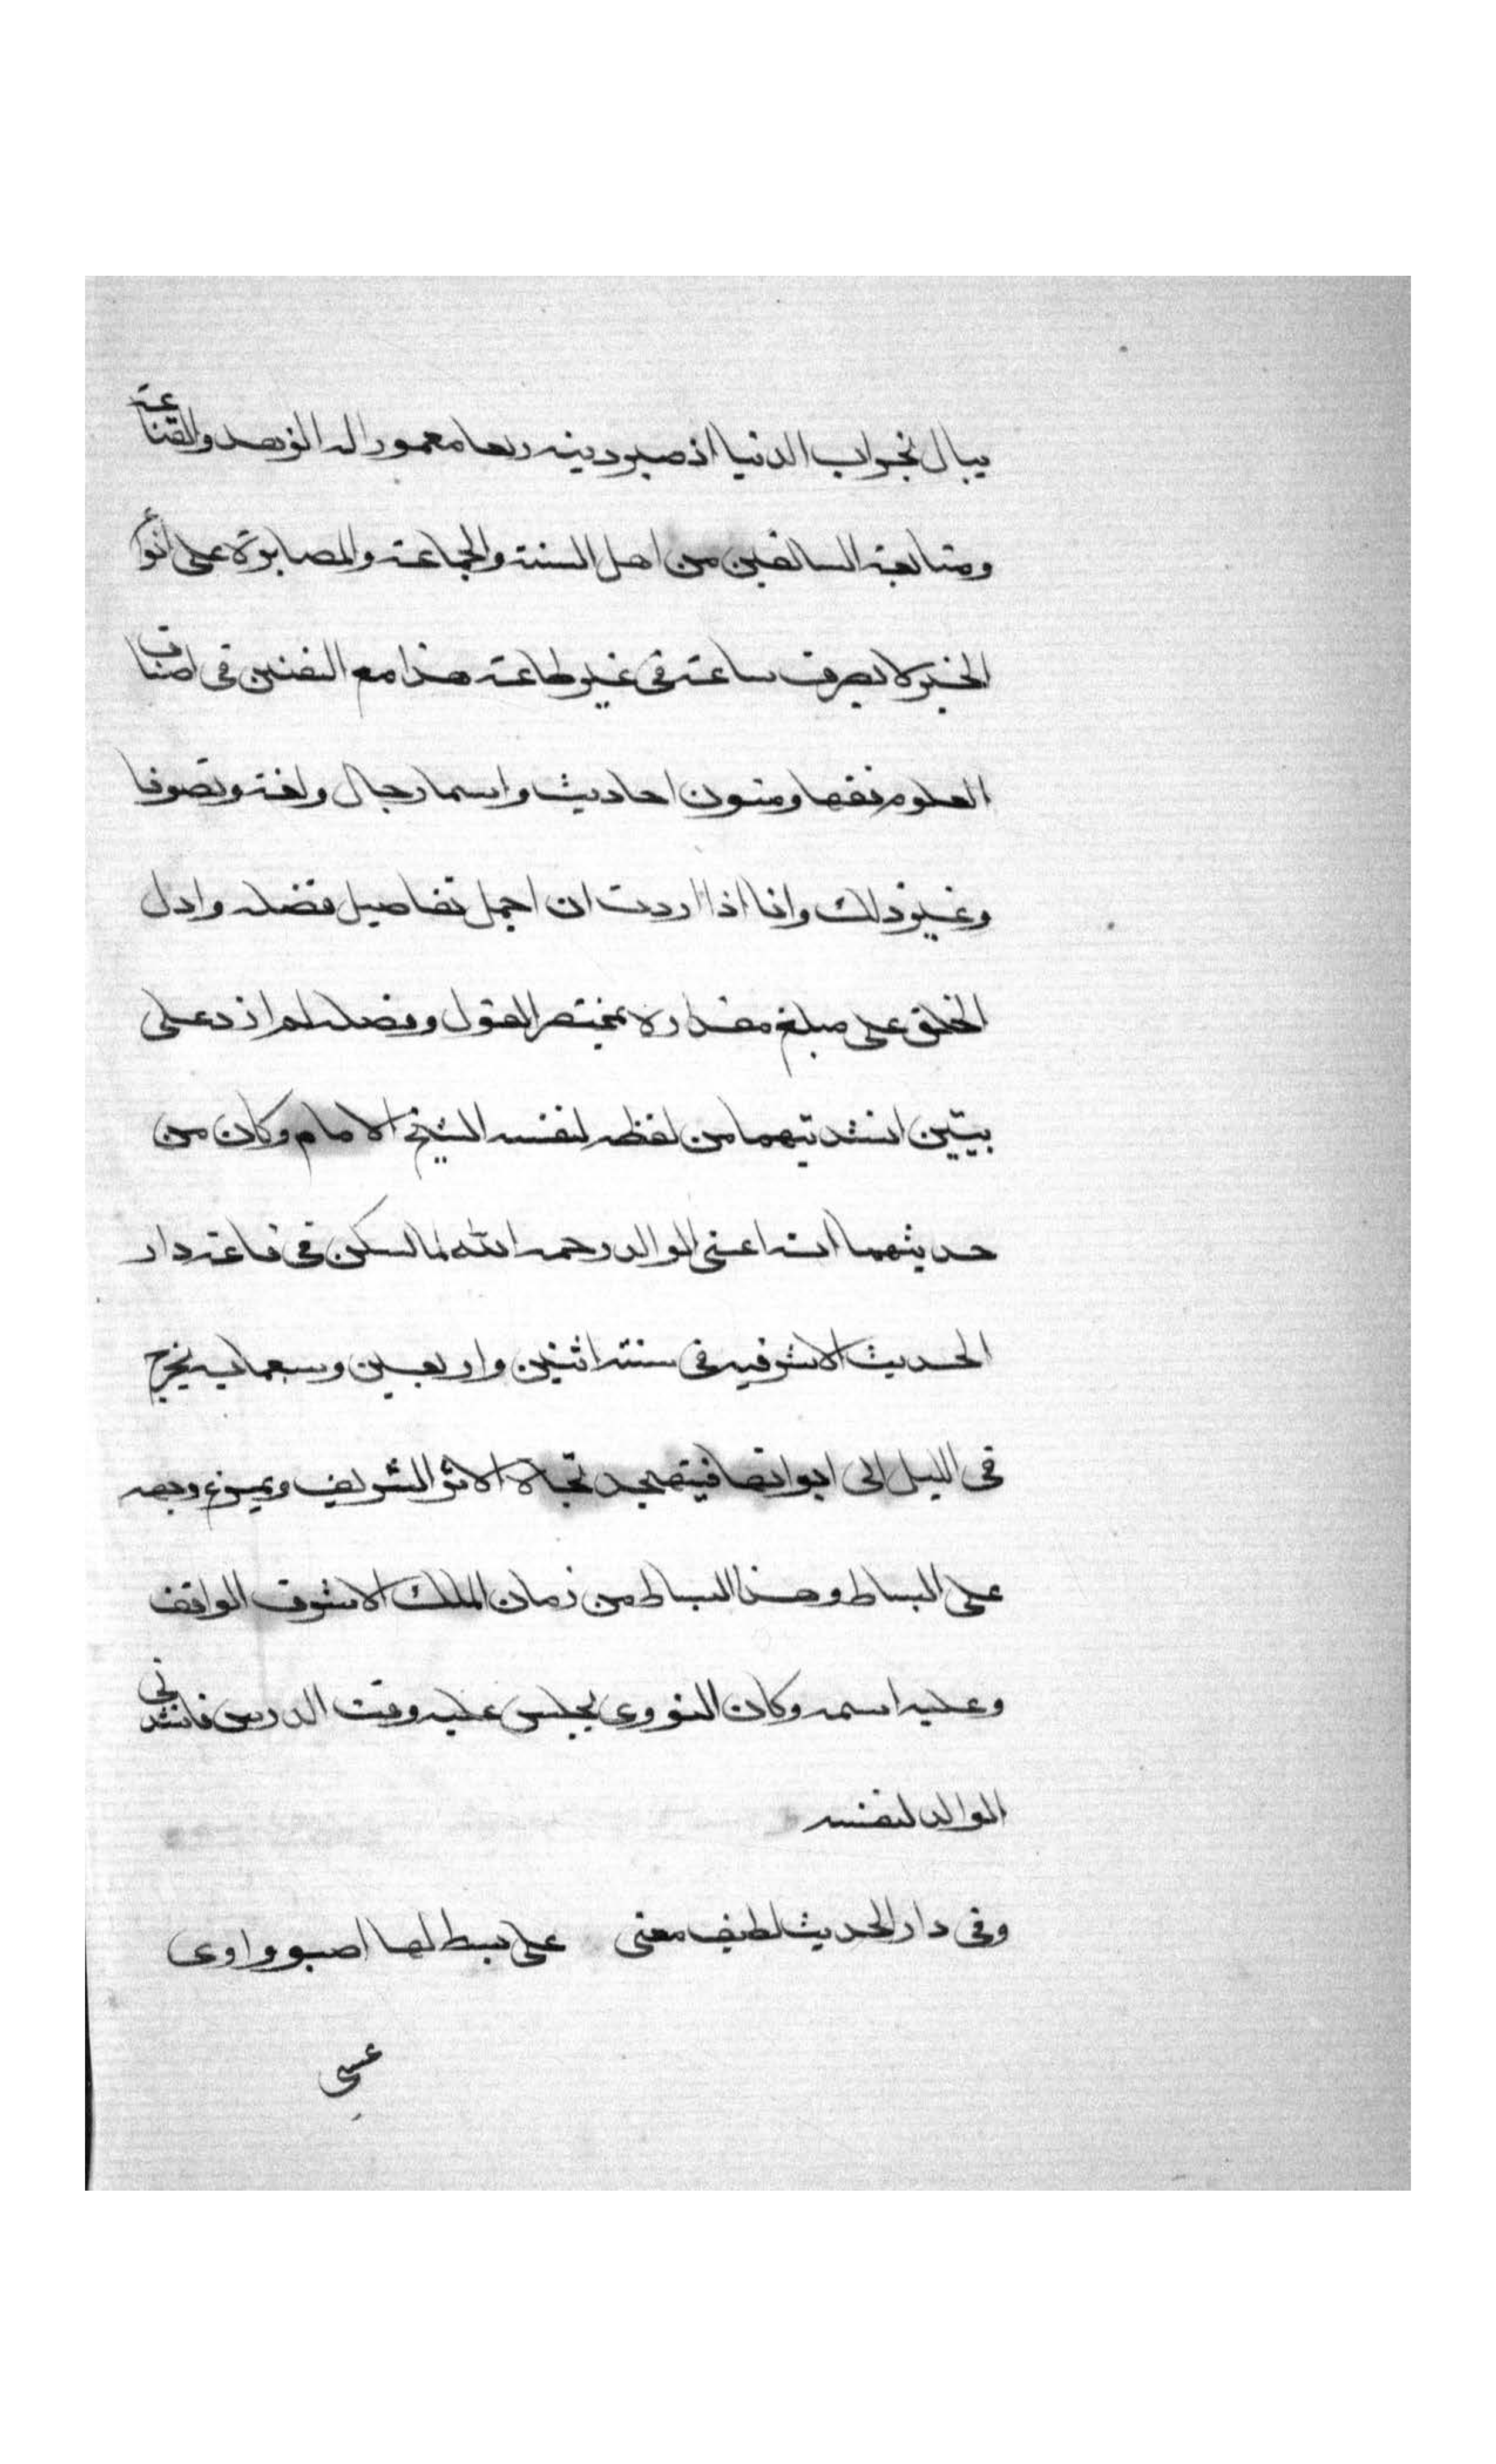 يبال بخراب الدنيا اذ صير دينه ربعا معمورا له الزهد والقناعة
ومتابعة السالفين من اهل السنة والجماعة والمصابرة على أنواع
الخير لا يصرف ساعة في غير طاعة هذا مع التفنن في اصناف
العلوم فقها ومتون احاديث واسما رجال ولغة وتصوفا
وغير ذلك وانا اذا اردت ان اجمل تفاصيل فضله وادل
الخلق على مبلغ مقداره بمختصر القول وفضله لم ازد على
بيتين انشدنيهما من لفظه لنفسه الشيخ الامام وكان من
حديثهما انه اعنى الوالد رحمه الله لما سكن في قاعة دار
الحديث الاشرفيه في سنة اثنين واربعين وسبعمايه يخرج
في الليل الى ايوانها فيتهجد تجاه الاثر الشريف ويمرغ وجهه
على البساط وهذا البساط من زمان الملك الاشرف الواقف
وعليه اسمه وكان النووي يجلس عليه وقت الدرس فانشدني
الوالد لنفسه
وفي دار الحديث لطيف معنى على بسط لها اصبو واوى
عسى